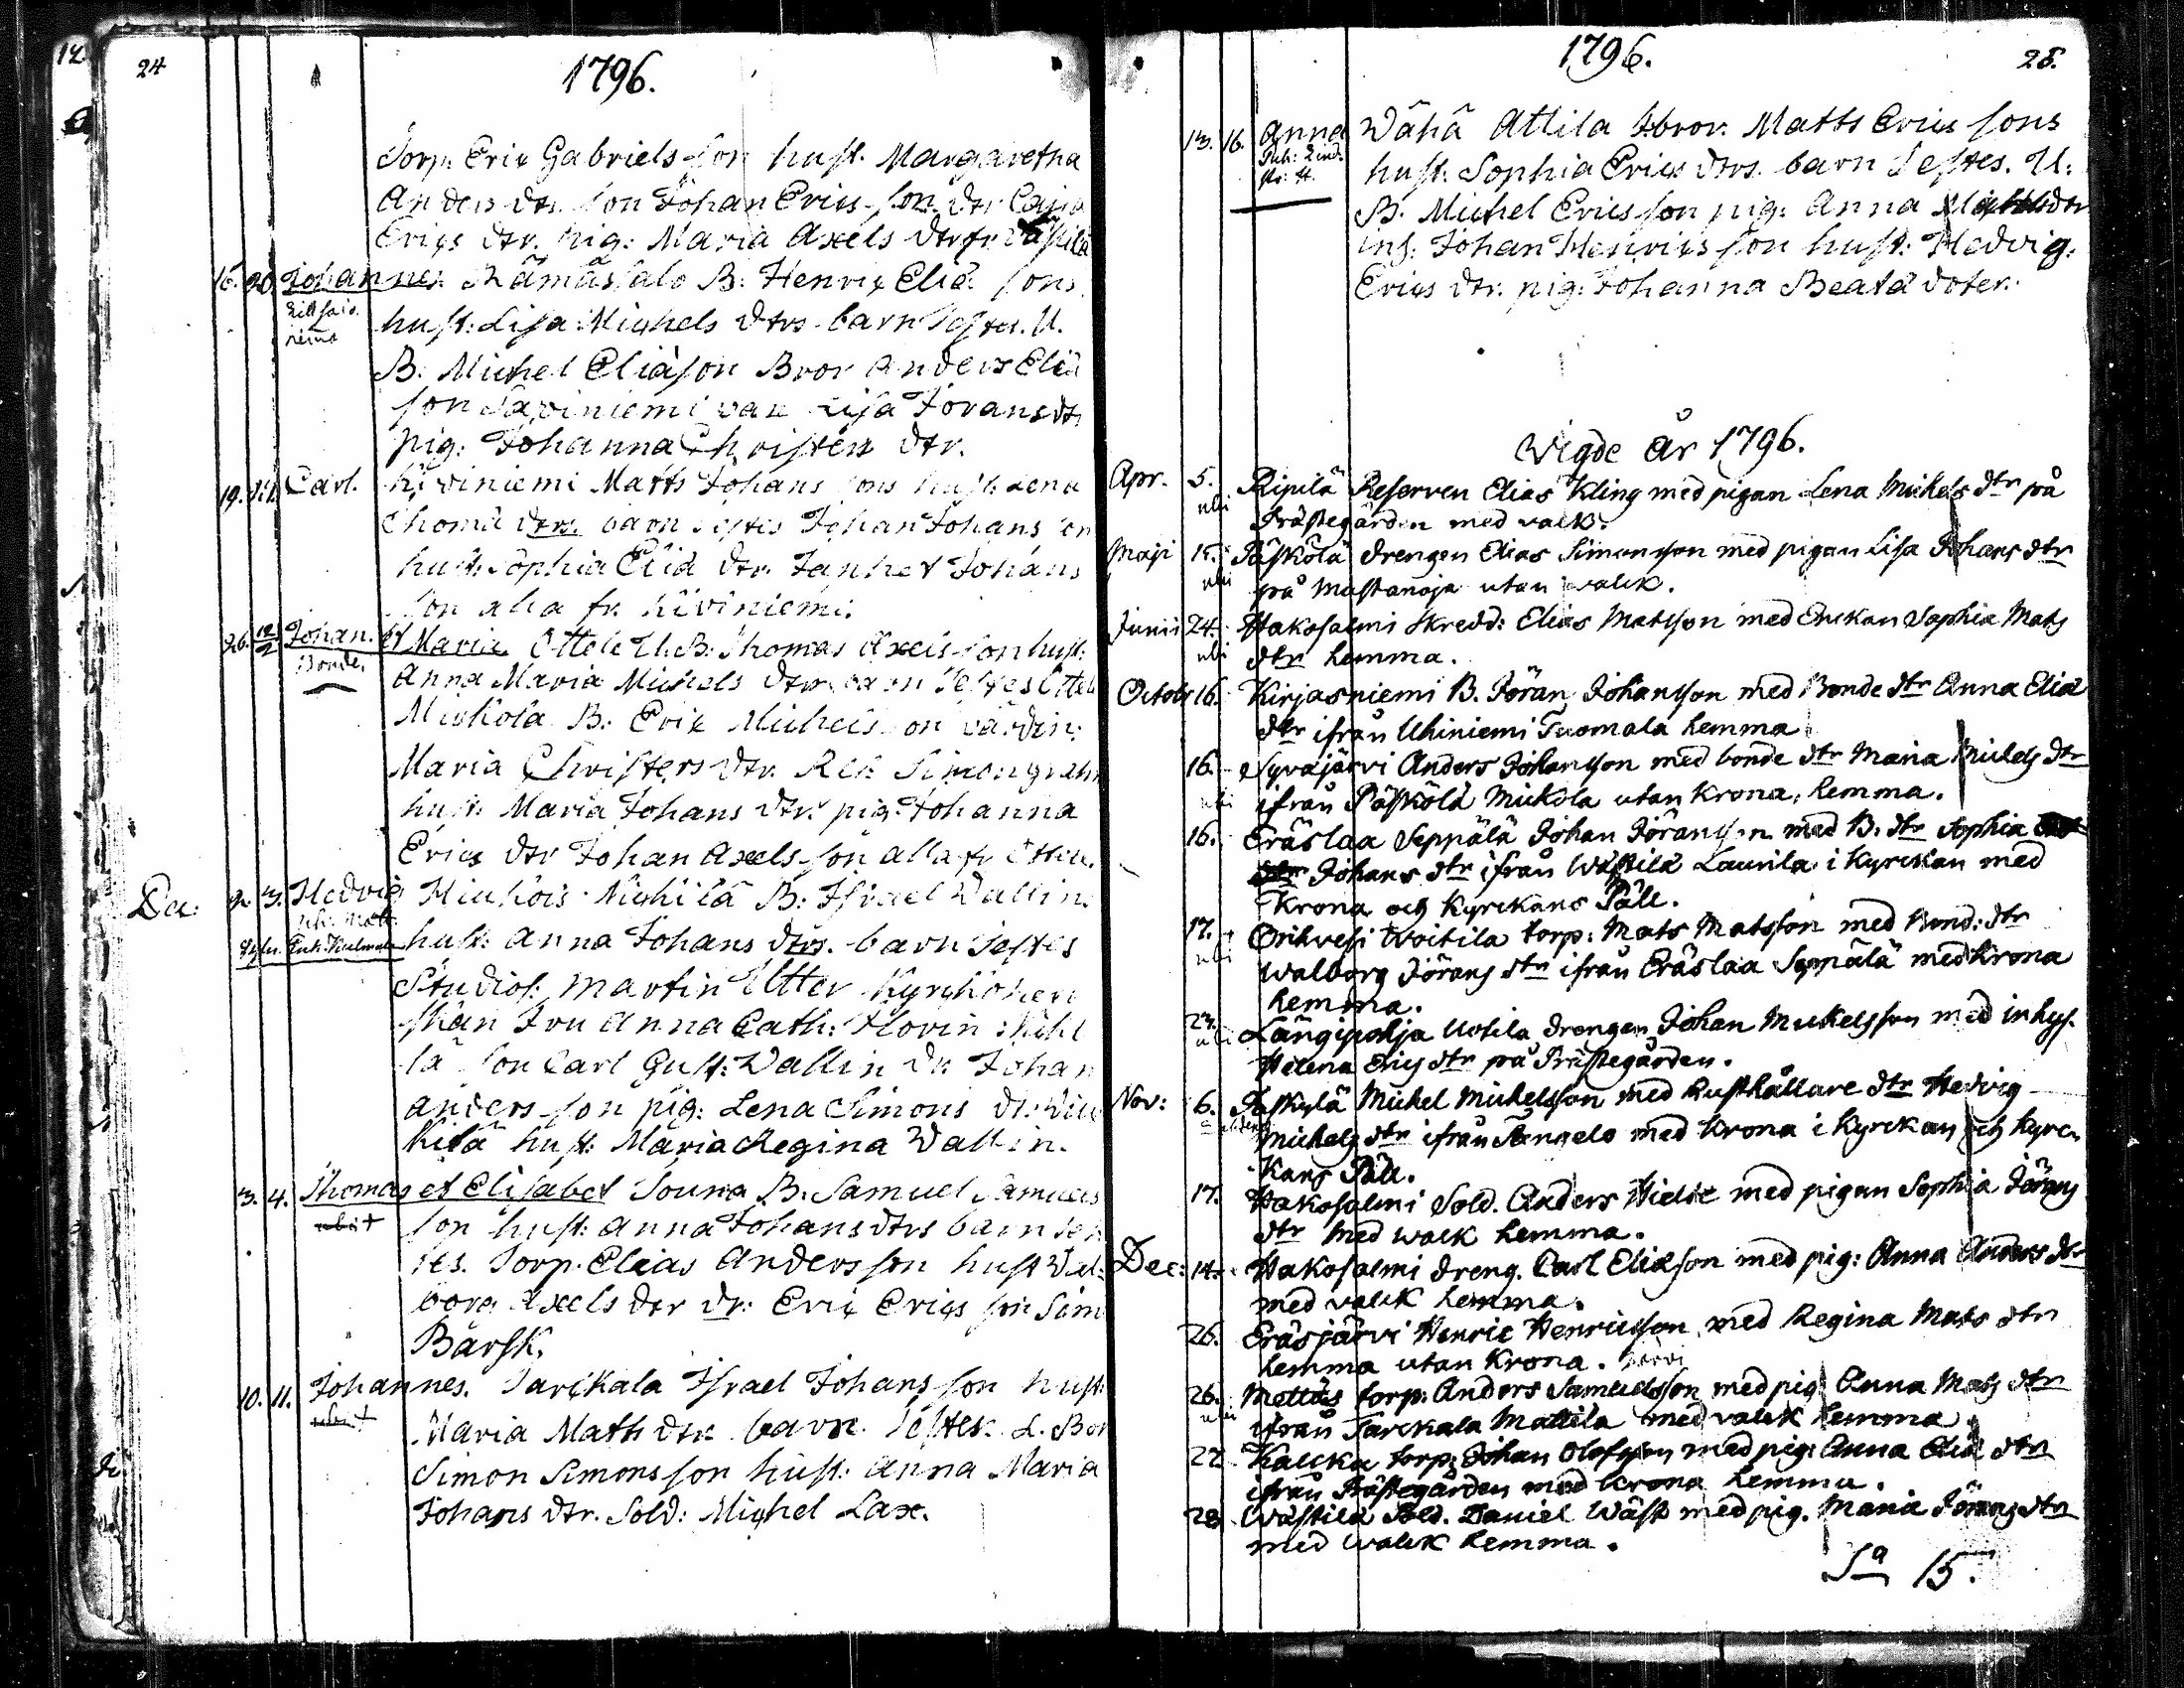 24
1796.
Torp: Eric Gabriels son hust. Margaretha
Anders dtr. son Johan Erics son dtr Cajsa
Erics dtr. pig: Maria Axels dtr fr Västilä
15. 20. Johannes. Rämässalo B: Henric Eliä sons
hust: Lisa Michels dtrs barn Testes. U.
B. Michel Eliäson Bror Anders Eliä
son Saviniemi Lisa Jöransdtr
pig: Johanna Christers dtr.
19. Carl. Kiviniemi Matts Johans sons hust: Lena
Thomä dtrs. barn Testes Johan Johans son
hust: Sophia Eliä dtr. Johans
son alla fr. Kiviniemi.
26. Johan. et Maria Ottela U. B. Thomas Axels son hust:
Bonde. Anna Maria Michels dtrs barn Testes Ottela
Mickola B: Eric Michels son värdin:
Maria Christers dtr. Simon
hust: Maria Johans dtr. pig: Johanna
Erics dtr Johan Axels son alla fr Ottela.
Dec: 2. 3. Hedvig Hiukois Nichilä B: Israel Wallins
hust: Anna Johans dtrs. barn Testes
Studios: Martin Utter Kyrkoher
skan Fru Anna Cath: Florin
lä son Carl Gust: Wallin Dr Johan
Anders son pig: Lena Simons dtr:
kilä hust: Maria Regina Wallin.
3. 4. Thomas et Elisabet Souna B. Samuel Samuels
son hust: Anna Johans dtrs barn Tes
tes. Torp. Elias Andersson hust Wal:
borg Axels dtr dr: Eric Erics son Sim
Barsk.
10. 11. Johannes. Tarckala Israel Johans son hust:
Maria Matts dtr. barn. Testes. L. Bon
Simon Simonsson hust: Anna Maria
Johans dtr. Sold: Michel Lax.
1796.
13. 16. Anna Wähä Attila Hbror. Matts Erics sons
hust. Sophia Erics dtrs. barn Testes. U.
B. Michel Erics son pig: Anna Mattsdtr
inh: Johan Henrics son hust: Hedvig.
Erics dtr. pig: Johanna Beata doter.
Vigde år 1796.
Apr. 5. Ripilä Reserven Elias Kling med pigan Lena Mickels dtr på
Prästegården med valk.
Maji 15. Päskölä drengen Elias Simonsson med pigan Lisa Johans dtr
på Mustanoja utan valck.
Junii 24. Hakosalmi Skredd: Elias Matsson med Enckan Sophia Mats
dtr hemma.
Octobr 16. Kirjasniemi B. Jöran Johansson med Bonde dtr Anna Eliä
dtr ifrån Uhiniemi Tuomala hemma
16. Syväjärvi Anders Johansson med bonde dtr Maria Michels dtr
ifrån Päskölä Mickola utan krona, hemma.
16. Eräslaa Seppälä Johan Jöransson med B. dtr Sophia
Johans dtr ifrån Wästilä Laurila i Kyrckan med
Krona och Kyrckans Päll.
17. Orihvesi Woitila torp: Mats Matsson med Bond: dtr
Walborg Jörans dtr ifrån Eräslaa Seppälä med krona
hemma.
23. Längipohja Uotila drengen Johan Mickelsson med inhys.
Helena Erics dtr på Prästegården.
Nov: 6. Päskylä Michel Michelsson med Rusthållare dtr Hedvig
Michels dtr ifrån med krona i Kyrckan och Kyrc
kans Päll.
17. Hakosalmi Sold. Anders med pigan Sophia Jörans
dtr med valk hemma.
Dec: 14. Hakosalmi dreng. Carl Eliäson med pig: Anna Anders dtr
med valck hemma.
26. Eräsjärvi Henric Henricsson med Regina Mats dtr
hemma utan krona.
26. Mettäs torp: Anders Samuelsson med pig: Anna Mats dtr
ifrån Tarckala Mattila med valck hemma
27. Kalcku torp: Johan Olofsson med pig: Anna Eliä dtr
ifrån Prästegården med krona hemma.
28. Wästilä Sold. Daniel Wäst med pig. Maria Jörans dtr
med valck hemma.
Sa 15.